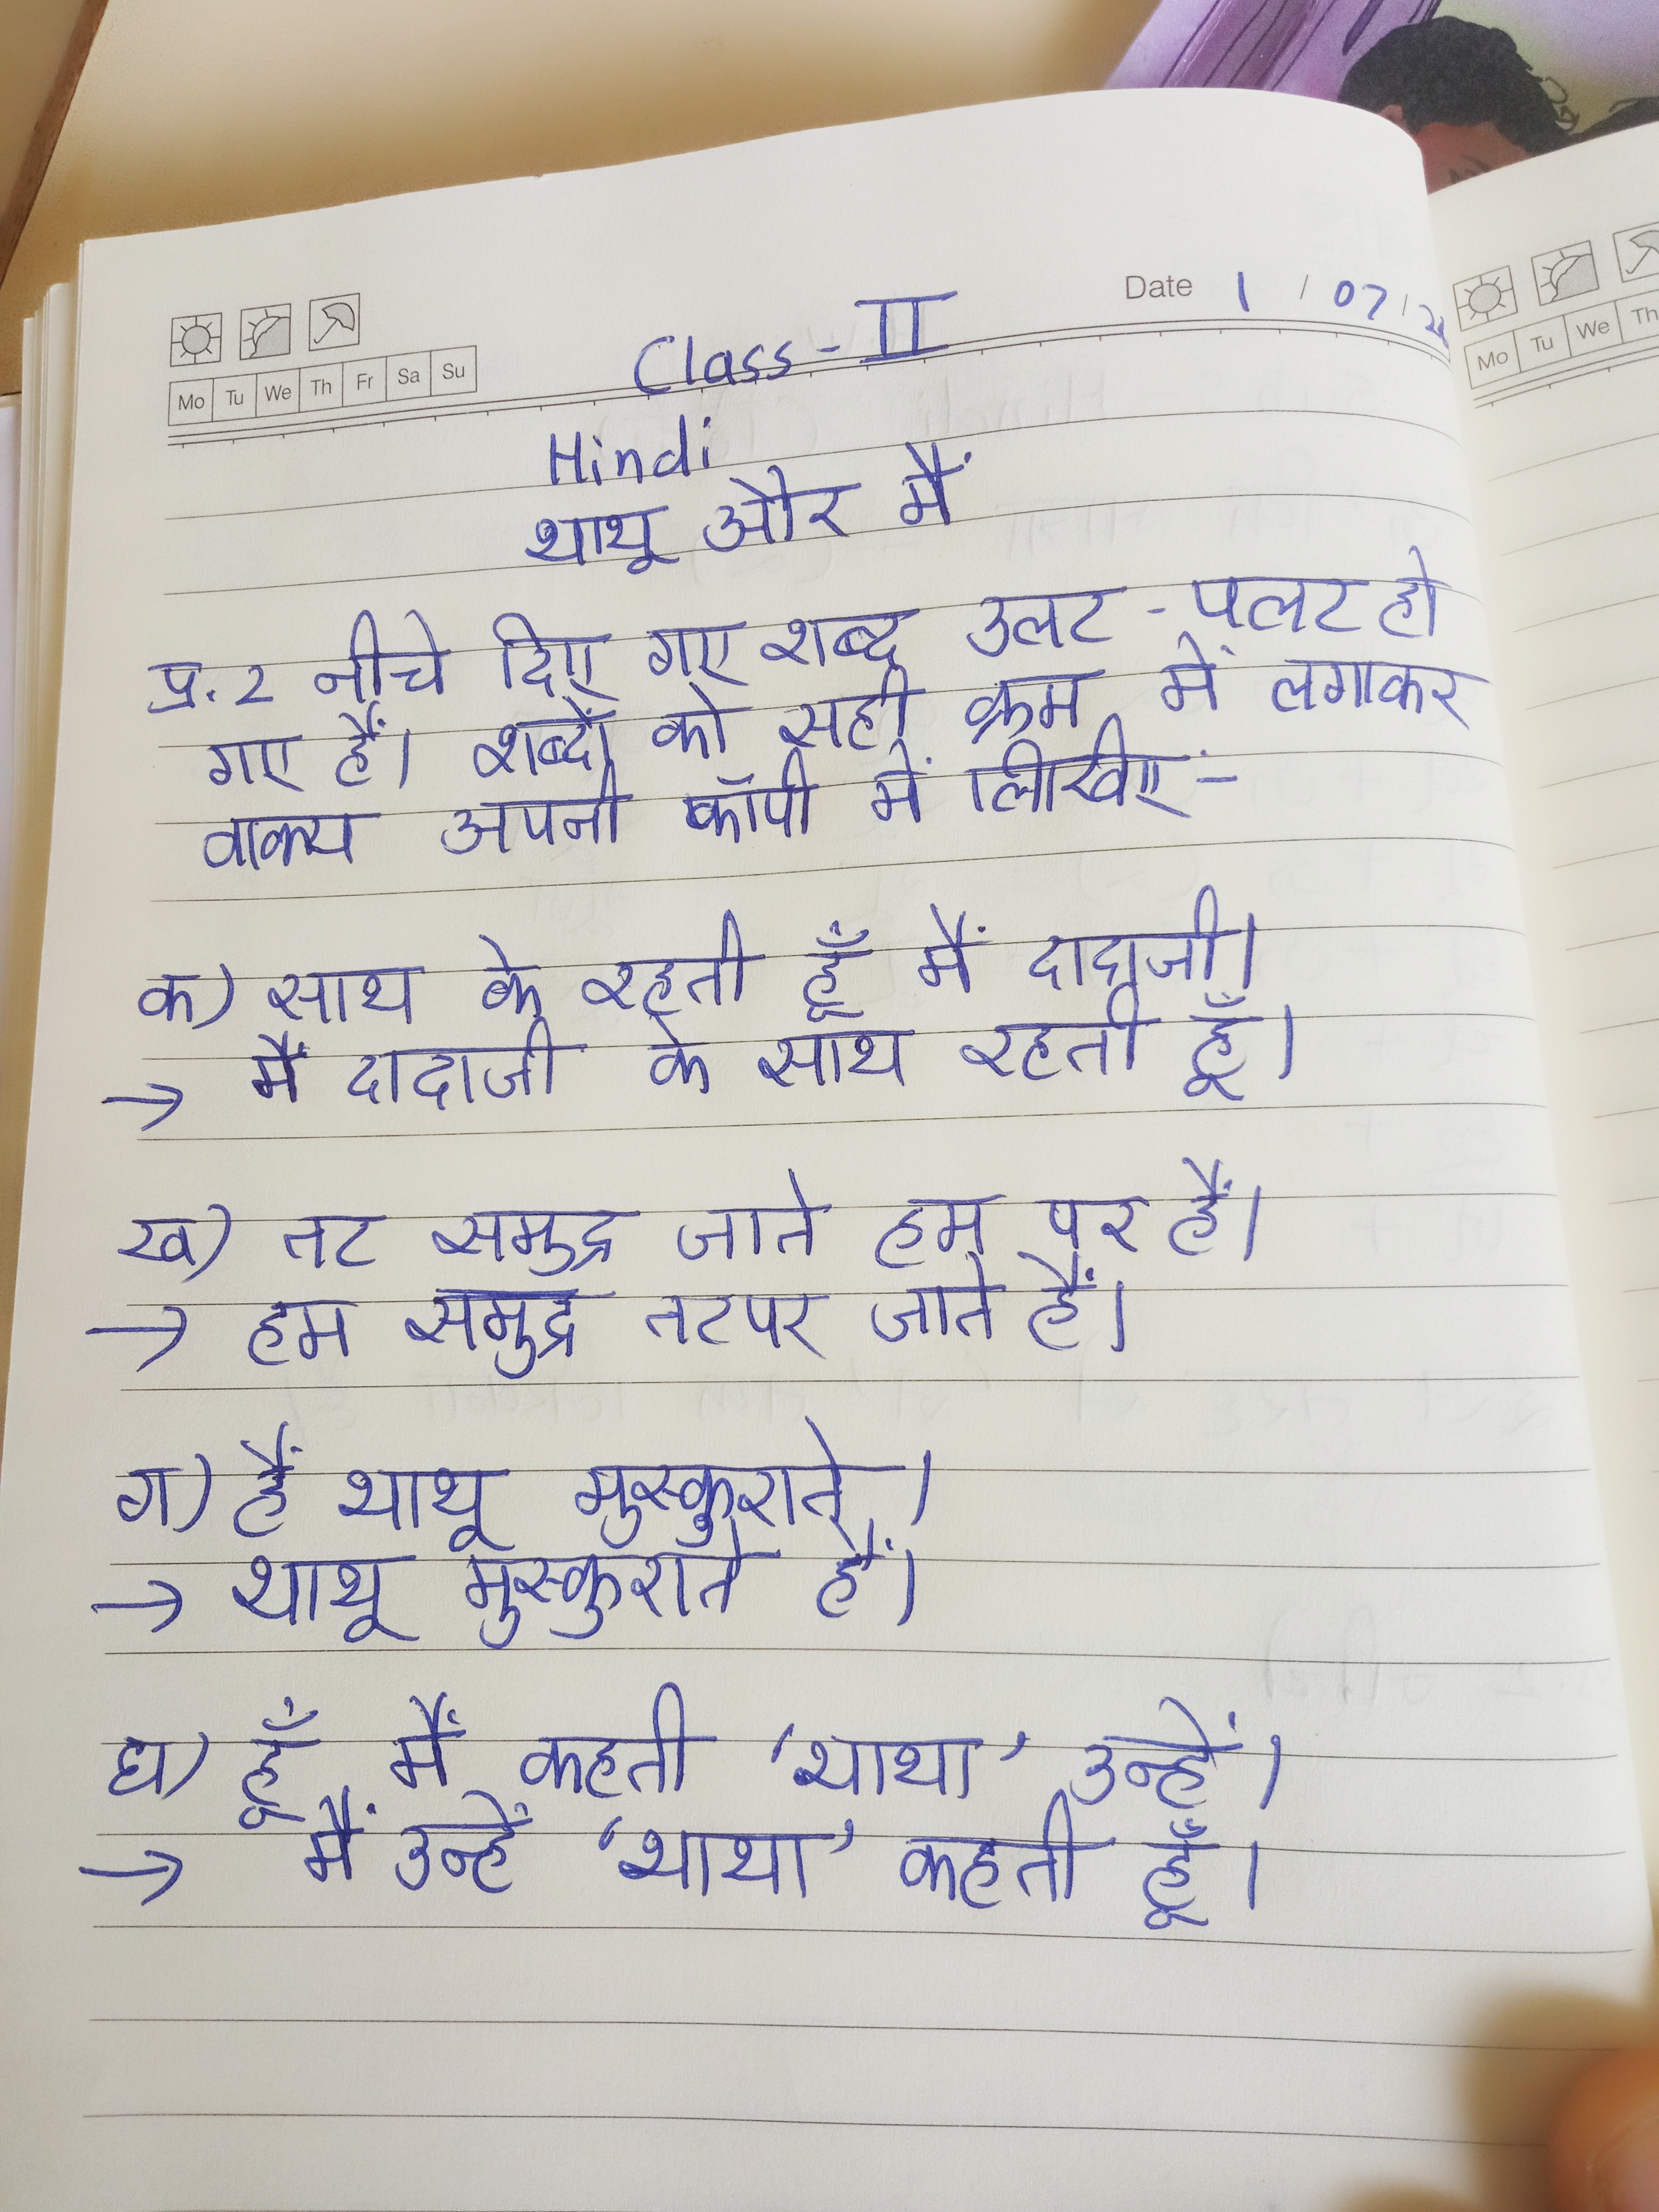 Date 1 / 07 /
Mo Tu We Th Fr Sa Su
Class - II
Hindi
थाथू और मैं
प्र. 2 नीचे दिए गए शब्द उलट - पलट हो
गए हैं। शब्दों को सही क्रम में लगाकर
वाक्य अपनी कॉपी में लिखिए -
क) साथ के रहती हूँ मैं दादाजी।
→ मैं दादाजी के साथ रहती हूँ।
ख) तट समुद्र जाते हम पर हैं।
→ हम समुद्र तट पर जाते हैं।
ग) हैं थाथू मुस्कुराते।
→ थाथू मुस्कुराते हैं।
घ) हूँ मैं कहती 'थाथा' उन्हें।
→ मैं उन्हें 'थाथा' कहती हूँ।
Mo Tu We Th